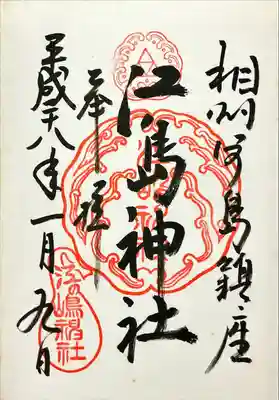 相州江島鎮座
江島神社
奉拝
平成十八年一月九日
江の嶋神社